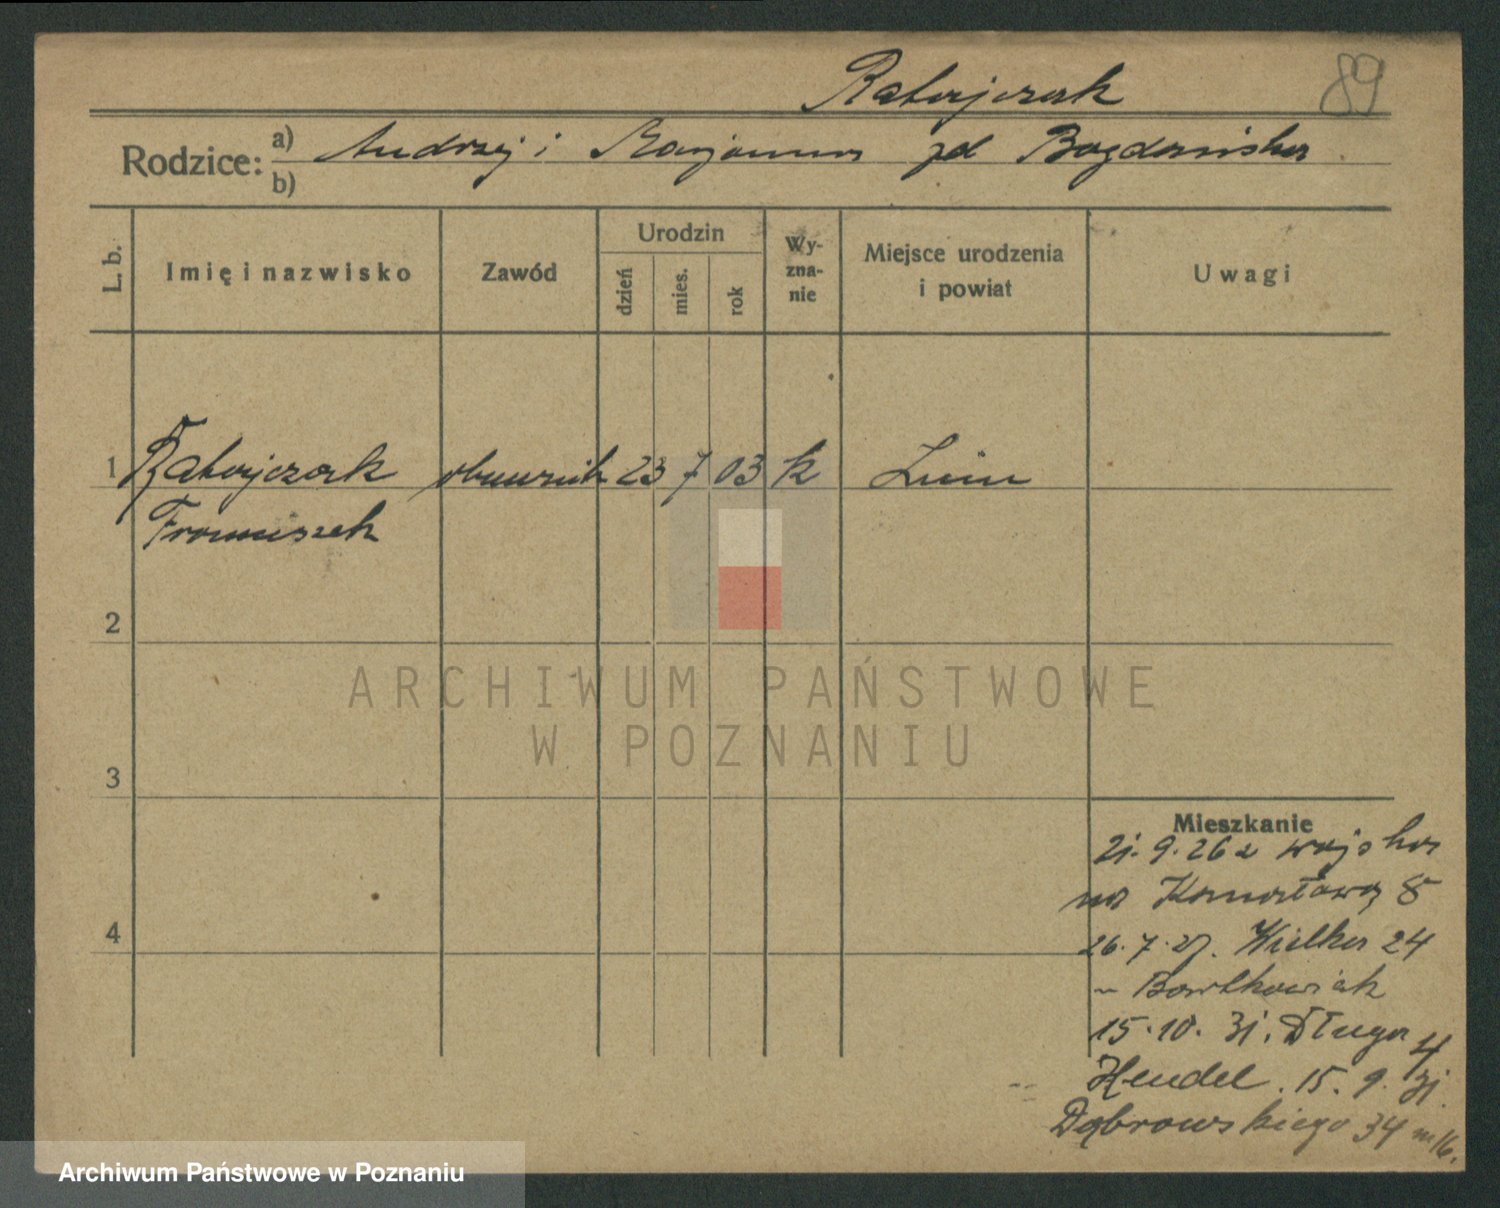 Ratajczak 89
Rodzice: a) Andrzej i Marjanna zd Bogdańska
b)
L. b. Imię i nazwisko Zawód Urodzin dzień mies. rok Wyznanie Miejsce urodzenia i powiat Uwagi
1 Ratajczak obuwnik 23 7 03 k Żnin
Franciszek
2
ARCHIWUM PAŃSTWOWE
W POZNANIU
3
Mieszkanie
21.9.26 z wojska
na 8
4
26.7.27. Wielka 24
Bartkowiak
15.10.31. Długa 4
Hendel. 15.9.31.
Dąbrowskiego 34 m 16.
Archiwum Państwowe w Poznaniu